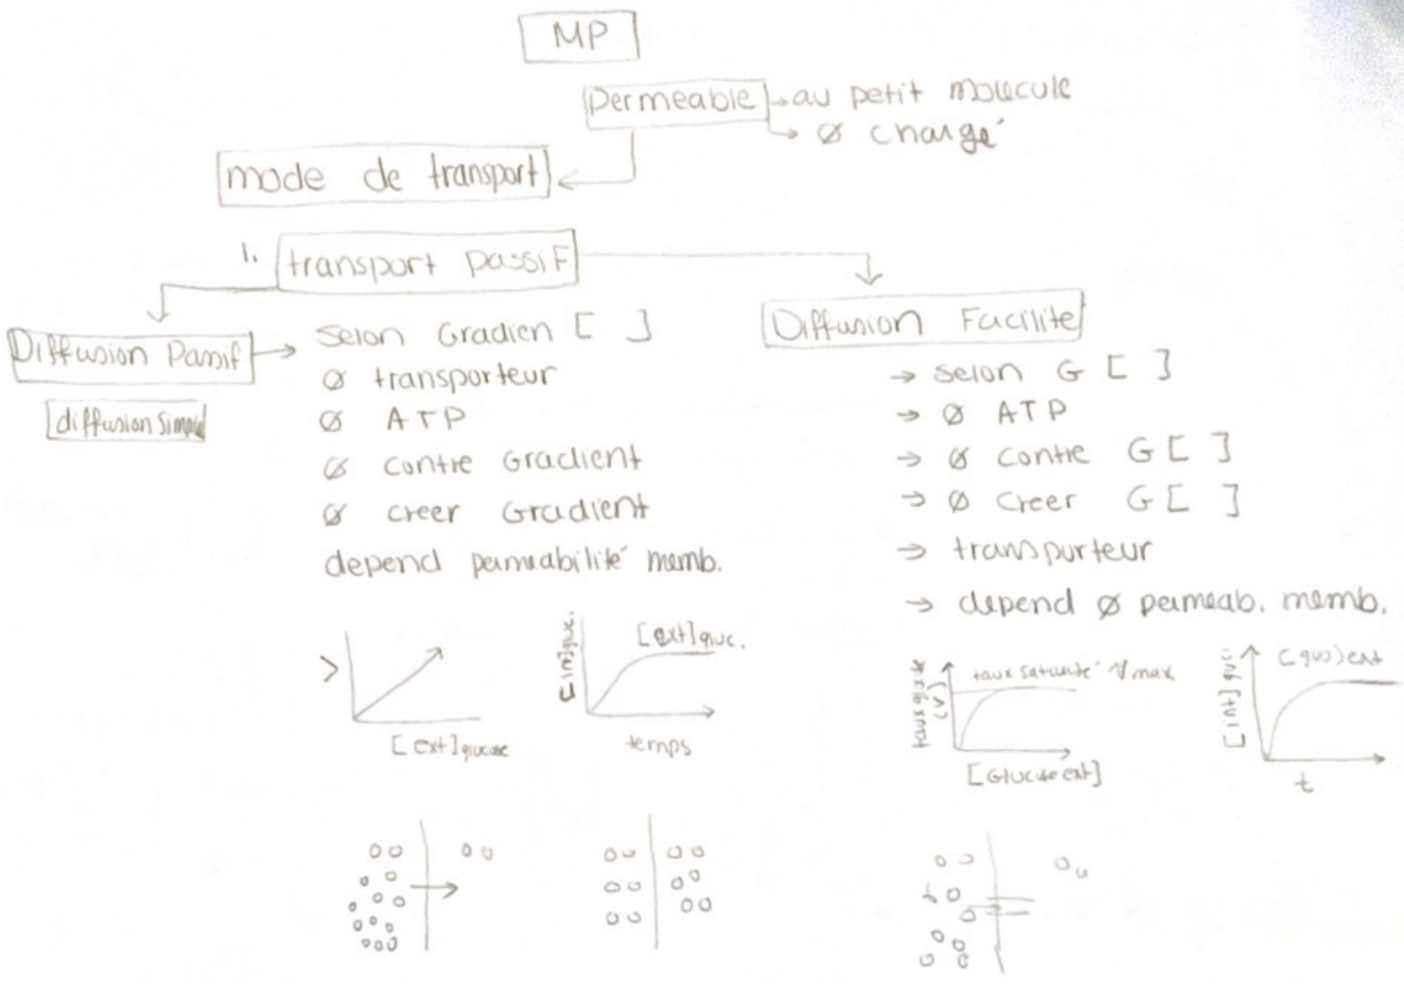 MP
Permeable → au petit molecule
→ Ø chargé
mode de transport
1. transport passiF
Diffusion Passif
diffusion simple
Selon Gradien [ ]
Ø transporteur
Ø ATP
Ø contre Gradient
Ø creer Gradient
depend permeabilité memb.
Diffusion Facilite
→ selon G [ ]
→ Ø ATP
→ Ø contre G [ ]
→ Ø creer G [ ]
→ transporteur
→ depend Ø permeab. memb.
V
[ext] glucose
[int] gluc.
[ext] gluc.
temps
taux glucose (V)
taux saturité Vmax
[Glucose ext]
[int] gluc
[gluc] ext
t